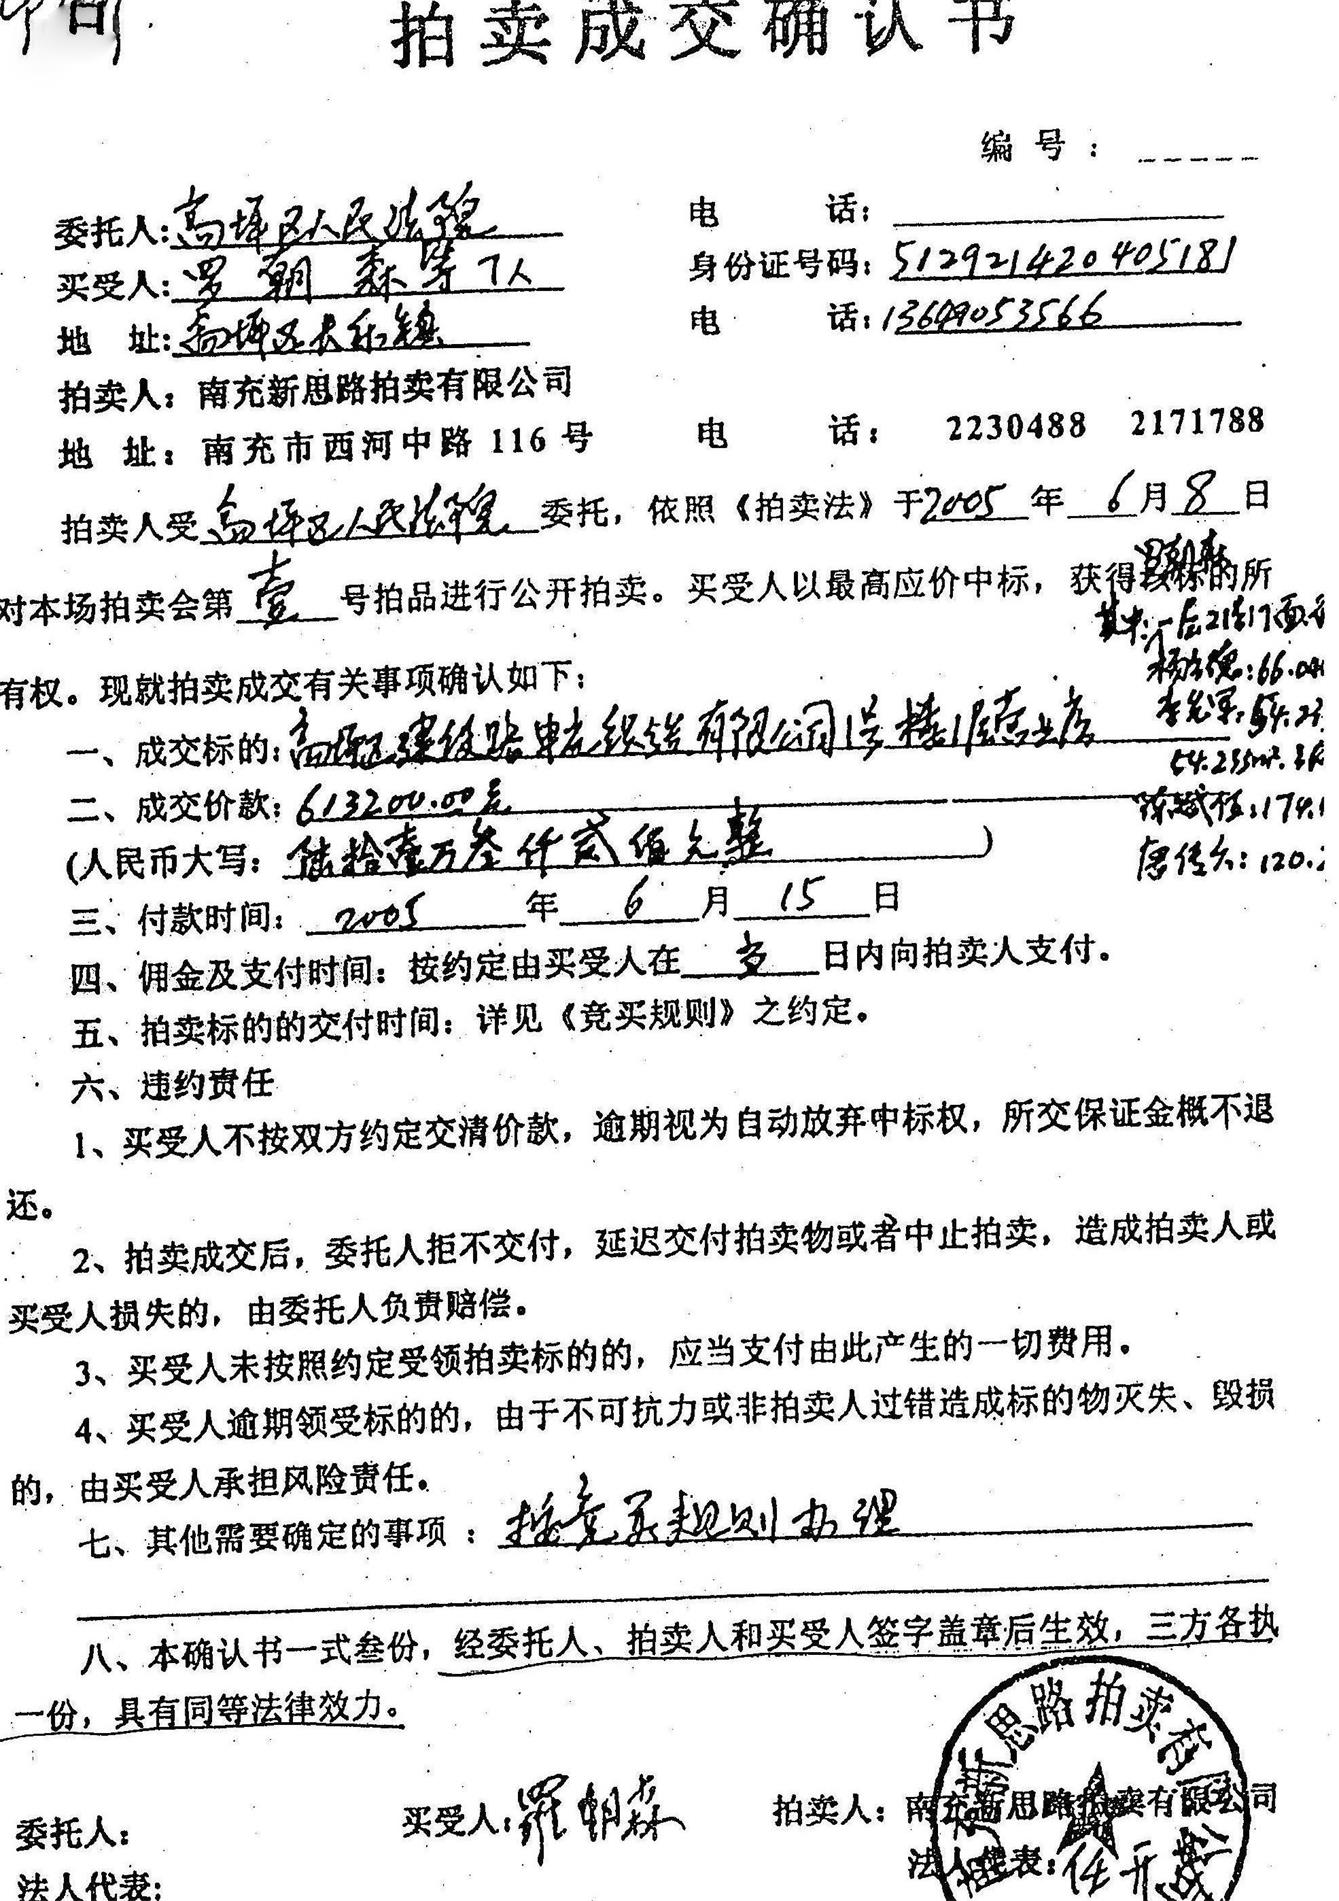 拍卖成交确认书
编号：
委托人:高坪区人民法院 电话:
买受人:罗朝森等7人 身份证号码:512921420405181
地址:高坪区长乐镇 电话:13649053566
拍卖人：南充新思路拍卖有限公司
地址：南充市西河中路116号 电话： 2230488 2171788
拍卖人受高坪区人民法院委托，依照《拍卖法》于2005年6月8日
对本场拍卖会第壹号拍品进行公开拍卖。买受人以最高应价中标，获得该标的所
有权。现就拍卖成交有关事项确认如下：
罗朝森
其中:一层2号门面
:66.04
54.23
54.235m².
:174.1
唐传六:120.2
一、成交标的:高坪区建设路 织造有限公司1号楼1层营业房
二、成交价款:613200.00元
(人民币大写：陆拾壹万叁仟贰佰元整)
三、付款时间：2005年6月15日
四、佣金及支付时间：按约定由买受人在 日内向拍卖人支付。
五、拍卖标的的交付时间：详见《竞买规则》之约定。
六、违约责任
1、买受人不按双方约定交清价款，逾期视为自动放弃中标权，所交保证金概不退
还。
2、拍卖成交后，委托人拒不交付，延迟交付拍卖物或者中止拍卖，造成拍卖人或
买受人损失的，由委托人负责赔偿。
3、买受人未按照约定受领拍卖标的的，应当支付由此产生的一切费用。
4、买受人逾期领受标的的，由于不可抗力或非拍卖人过错造成标的物灭失、毁损
的，由买受人承担风险责任。
七、其他需要确定的事项：按竞买规则办理
八、本确认书一式叁份，经委托人、拍卖人和买受人签字盖章后生效，三方各执
一份，具有同等法律效力。
委托人： 买受人:罗朝森 拍卖人：南充新思路拍卖有限公司
法人代表： 法人代表:任开
新思路拍卖有限公司